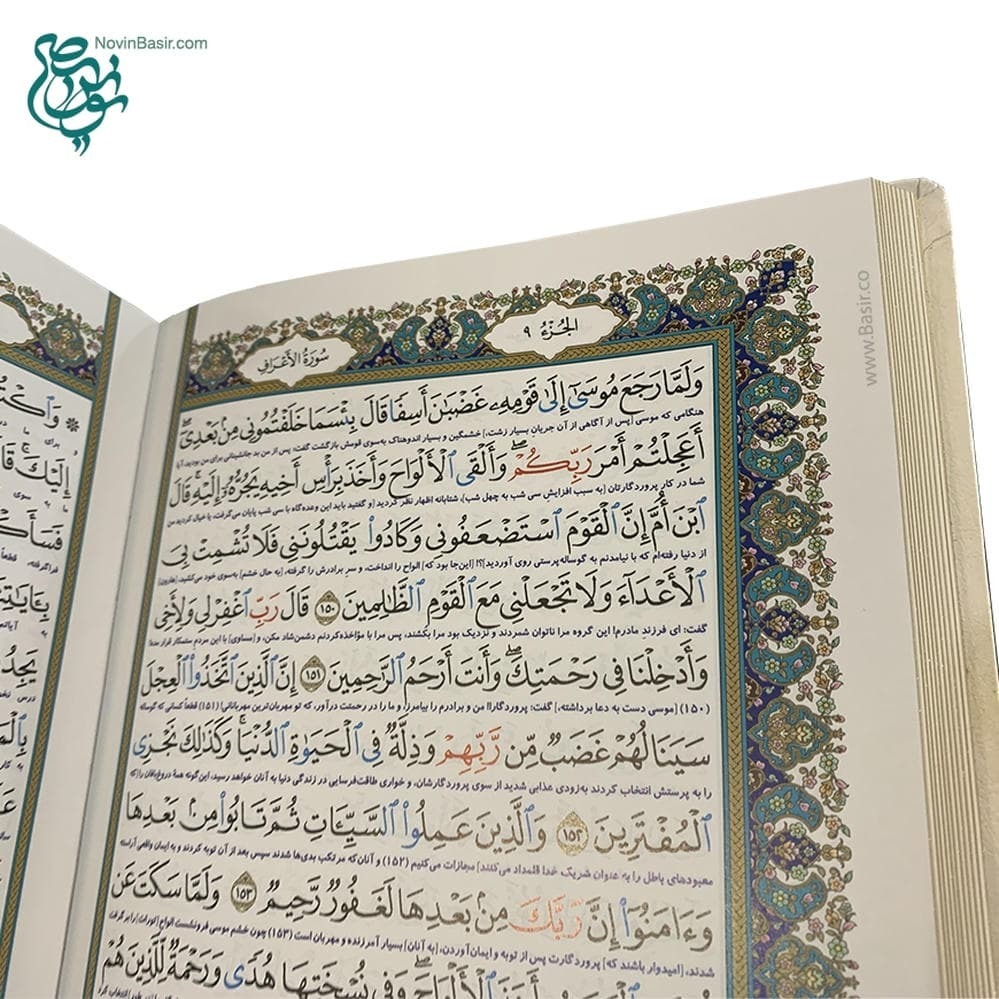 NovinBasir.com
www.Basir.co
الجُزءُ ٩
سُورَةُ الأَعْرَافِ
وَلَمَّا رَجَعَ مُوسَىٰٓ إِلَىٰ قَوْمِهِۦ غَضْبَٰنَ أَسِفًا قَالَ بِئْسَمَا خَلَفْتُمُونِي مِنۢ بَعْدِيٓۖ
هنگامی که موسی [پس از آگاهی از آن جریانِ بسیار زشت،] خشمگین و بسیار اندوهناک به‌سوی قومش بازگشت گفت: پس از من بد جانشینانی برای من بودید، آیا
أَعَجِلْتُمْ أَمْرَ رَبِّكُمْۖ وَأَلْقَى ٱلْأَلْوَاحَ وَأَخَذَ بِرَأْسِ أَخِيهِ يَجُرُّهُۥٓ إِلَيْهِۚ قَالَ
شما در کار پروردگارتان [به سبب افزایش سی شب به چهل شب]، شتابانه اظهار نظر کردید [و گفتید باید این وعده‌گاه با سی شب پایان می‌گرفت، یا خیال کردید من
ٱبْنَ أُمَّ إِنَّ ٱلْقَوْمَ ٱسْتَضْعَفُونِي وَكَادُوا۟ يَقْتُلُونَنِي فَلَا تُشْمِتْ بِيَ
از دنیا رفته‌ام که با نیامدنم به گوساله‌پرستی روی آوردید؟]! [این‌جا بود که] الواح را انداخت، و سر برادرش را گرفته، [به حال خشم] به‌سوی خود می‌کشید، [هارون]
ٱلْأَعْدَآءَ وَلَا تَجْعَلْنِي مَعَ ٱلْقَوْمِ ٱلظَّٰلِمِينَ ١٥٠ قَالَ رَبِّ ٱغْفِرْ لِي وَلِأَخِي
گفت: ای فرزند مادرم! این گروه مرا ناتوان شمردند و نزدیک بود مرا بکشند، پس مرا با مؤاخذه کردنم دشمن‌شاد مکن، و [مساوی] با این مردم ستمکار قرار مده!
وَأَدْخِلْنَا فِي رَحْمَتِكَۖ وَأَنتَ أَرْحَمُ ٱلرَّٰحِمِينَ ١٥١ إِنَّ ٱلَّذِينَ ٱتَّخَذُوا۟ ٱلْعِجْلَ
(۱۵۰) [موسی دست به دعا برداشته،] گفت: پروردگارا! من و برادرم را بیامرز، و ما را در رحمتت درآور، که تو مهربان‌ترین مهربانانی! (۱۵۱) قطعاً کسانی که گوساله
سَيَنَالُهُمْ غَضَبٌ مِّن رَّبِّهِمْ وَذِلَّةٌ فِي ٱلْحَيَوٰةِ ٱلدُّنْيَاۚ وَكَذَٰلِكَ نَجْزِي
را به پرستش انتخاب کردند به‌زودی عذابی شدید از سوی پروردگارشان، و خواری طاقت‌فرسایی در زندگی دنیا به آنان خواهد رسید، این گونه همهٔ دروغ‌بافان را [که
ٱلْمُفْتَرِينَ ١٥٢ وَٱلَّذِينَ عَمِلُوا۟ ٱلسَّيِّـَٔاتِ ثُمَّ تَابُوا۟ مِنۢ بَعْدِهَا
معبودهای باطل را به عنوان شریک خدا قلمداد می‌کنند] مجازات می‌کنیم (۱۵۲) و آنان‌که مرتکب بدی‌ها شدند سپس بعد از آن توبه کردند و به ایمان واقعی آراسته
وَءَامَنُوٓا۟ إِنَّ رَبَّكَ مِنۢ بَعْدِهَا لَغَفُورٌ رَّحِيمٌ ١٥٣ وَلَمَّا سَكَتَ عَن
شدند، [امیدوار باشند که] پروردگارت پس از توبه و ایمان‌آوردن، [به آنان] بسیار آمرزنده و مهربان است (۱۵۳) چون خشم موسی فرونشست الواح [تورات] را برگرفت
ٱلْأَلْوَاحَۖ وَفِي نُسْخَتِهَا هُدًى وَرَحْمَةٌ لِّلَّذِينَ هُمْ
إِلَيْكَۚ